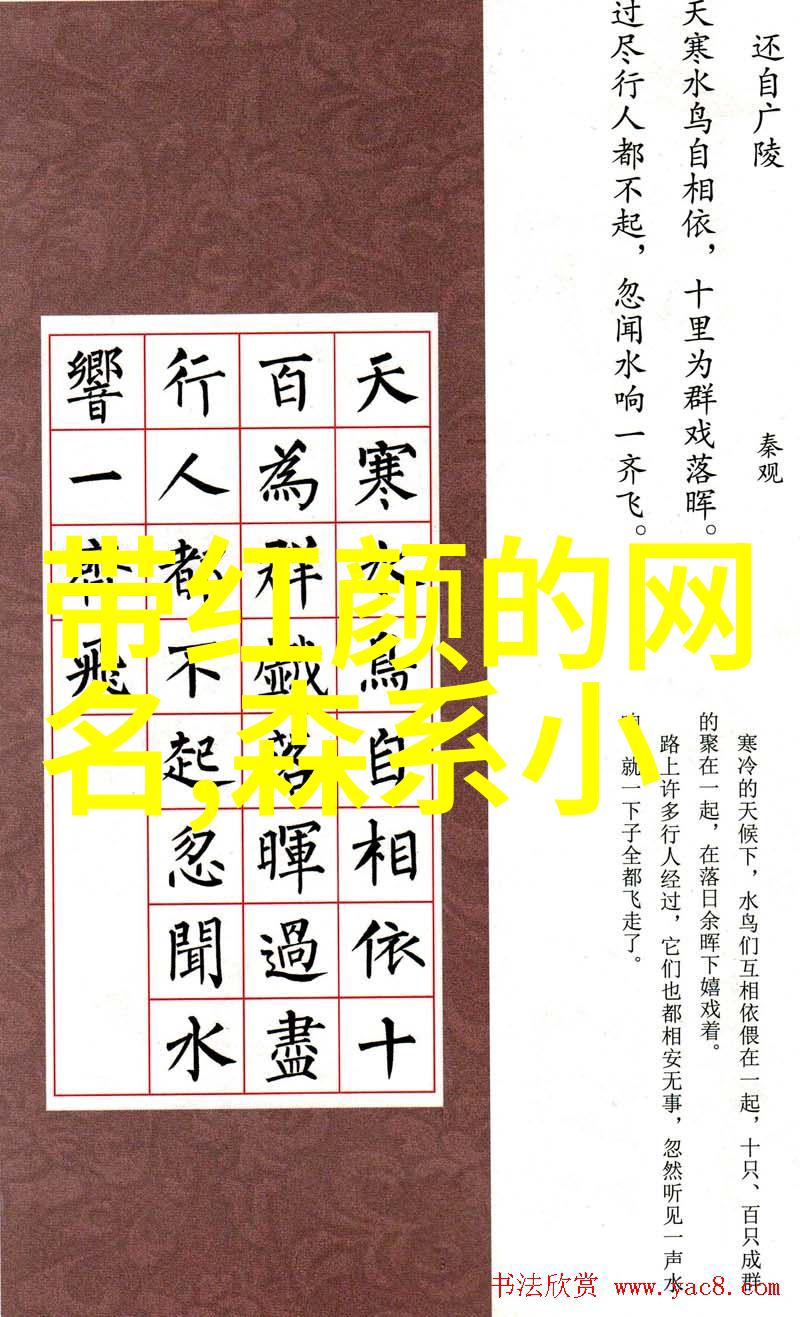 还自广陵
秦观
天寒水鸟自相依，十里为群戏落晖。
过尽行人都不起，忽闻水响一齐飞。
寒冷的天候下，水鸟们互相依偎在一起，十只、百只成群
的聚在一起，在落日余晖下嬉戏着。
路上许多行人经过，它们也都相安无事，忽然听见一声水
就一下子全都飞走了。
天寒水鳥自相依十
百為群戲落暉過盡
行人都不起忽聞水
響一齊飛
带红颜的网
名,森系小
书法欣赏 www.yac8.com